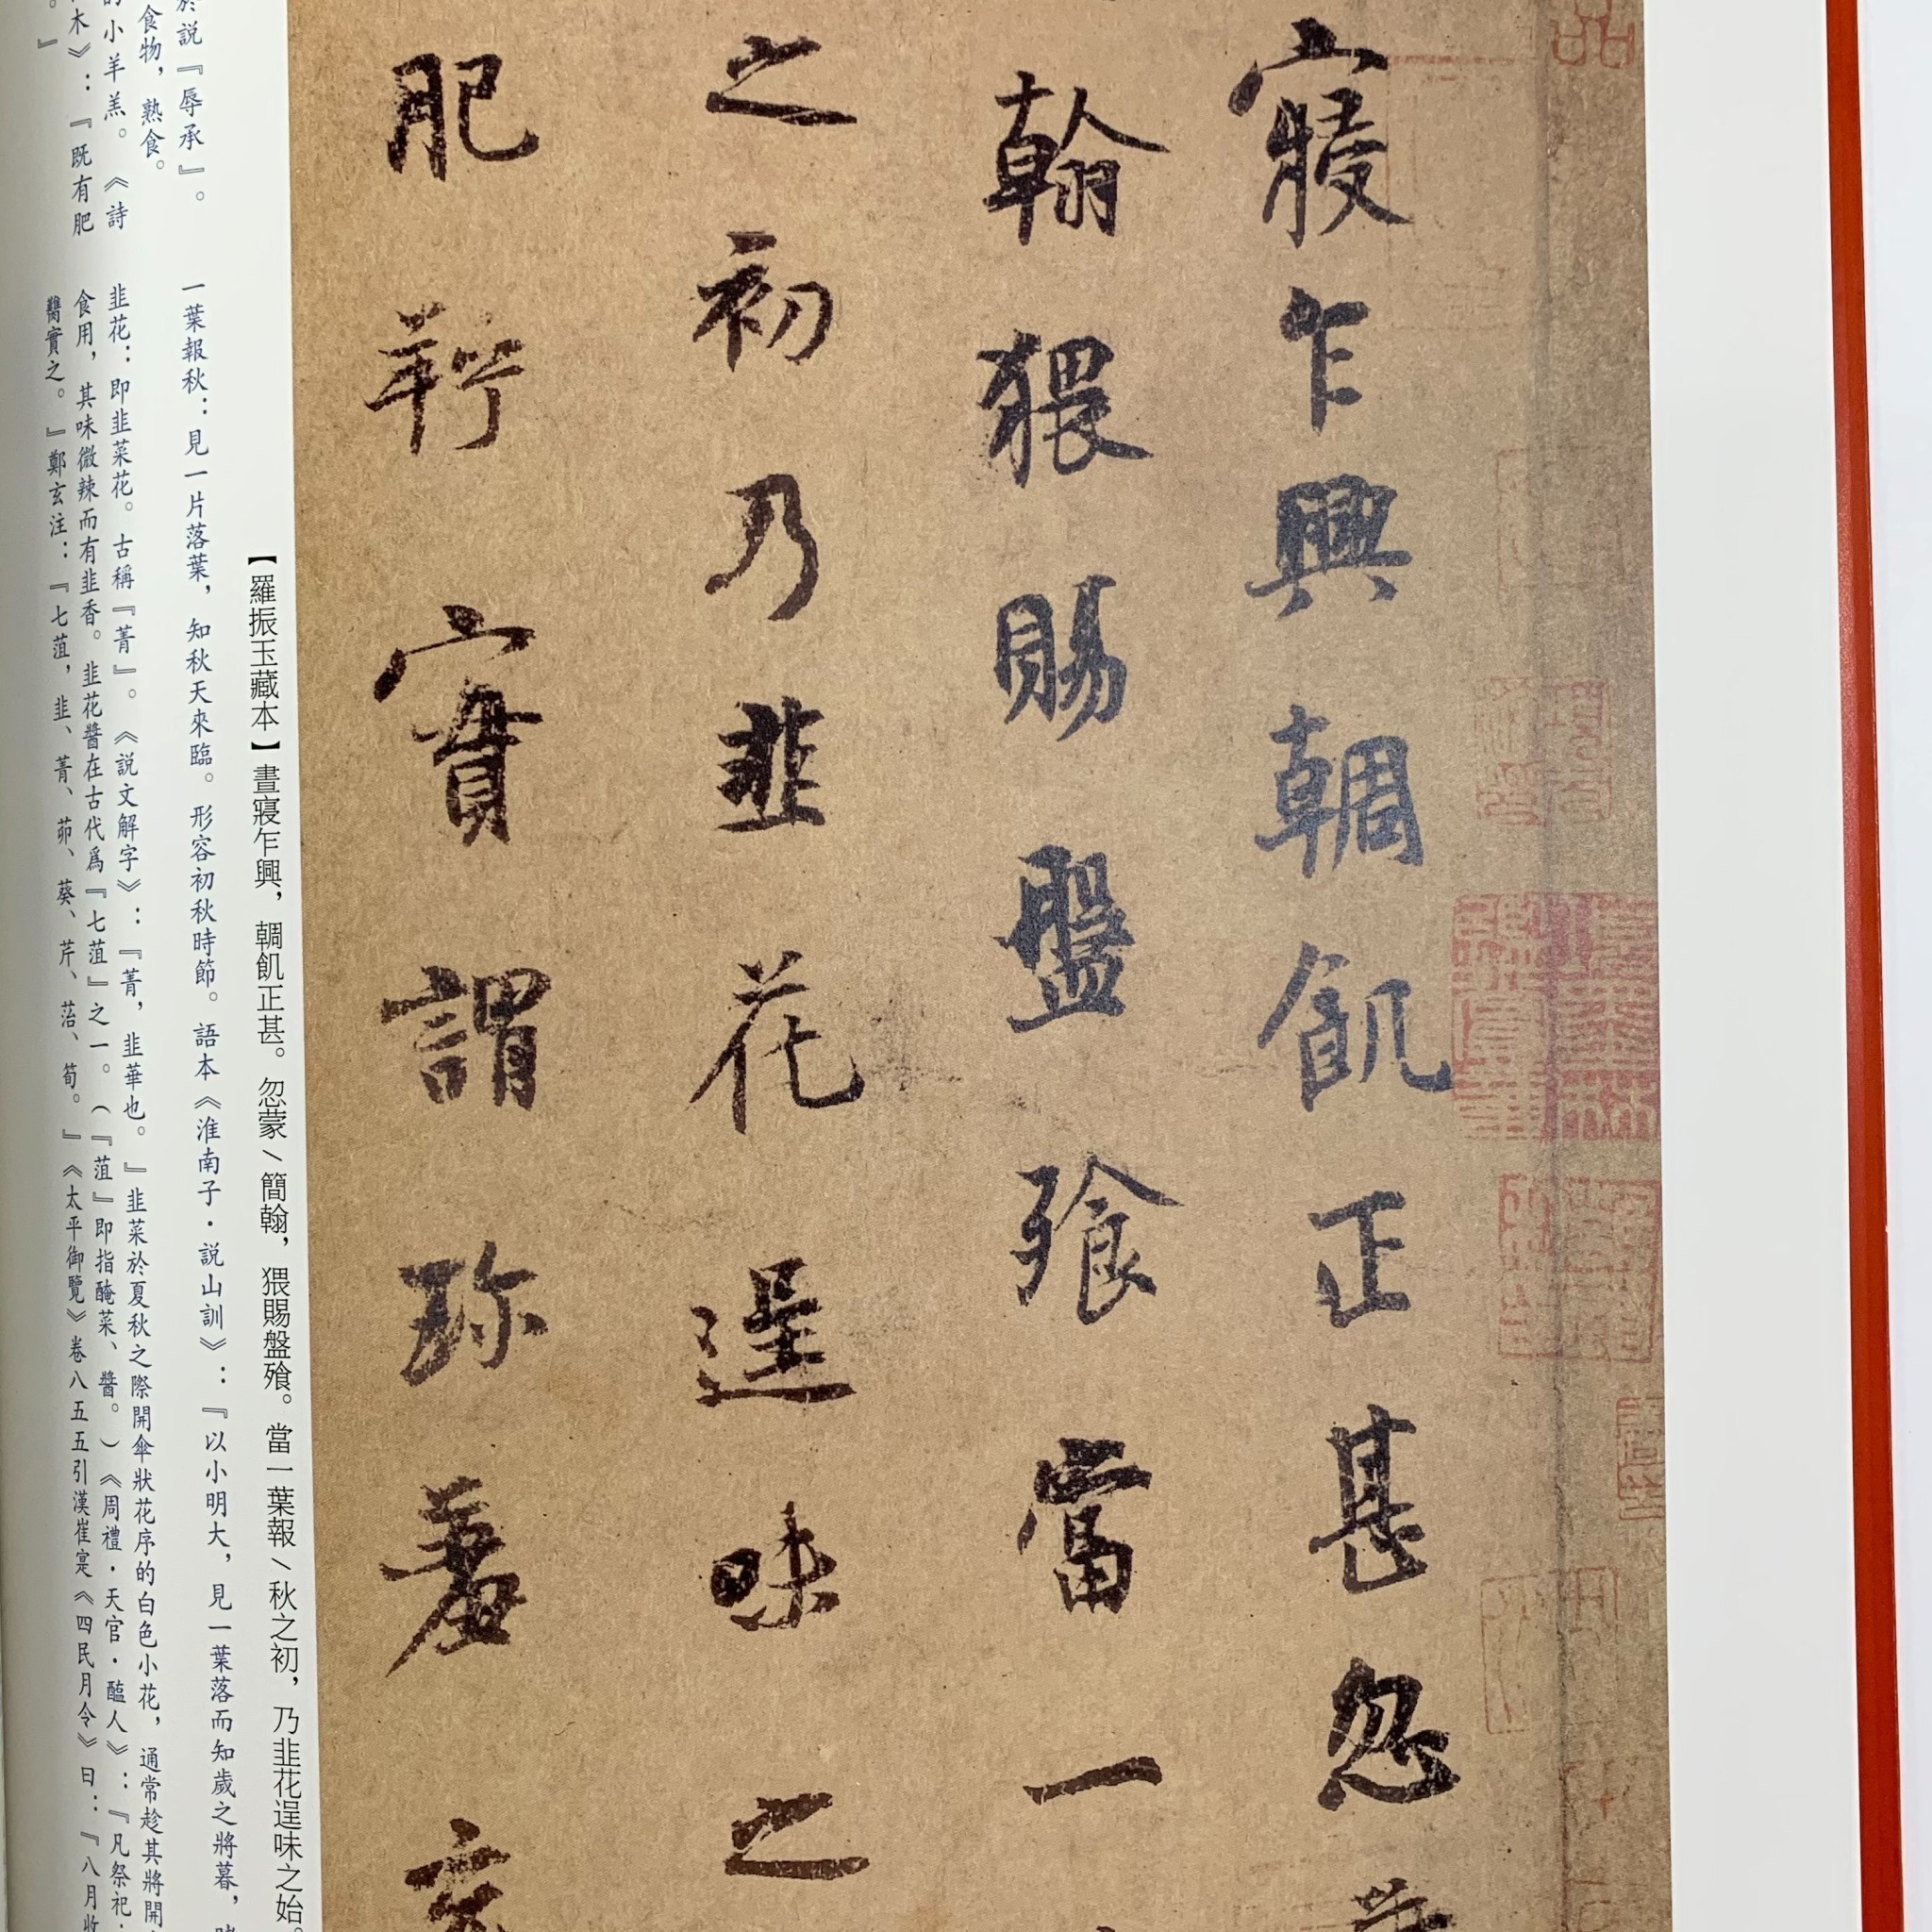 寢乍興輖飢正甚忽
翰猥賜盤飱當一
之初乃韭花逞味之
肥羜實謂珍羞充
【羅振玉藏本】晝寢乍興，輖飢正甚。忽蒙/簡翰，猥賜盤飱。當一葉報/秋之初，乃韭花逞味之始。
説『辱承』。
食物，熟食。
小羊羔。《詩
木》：『既有肥
。』
一葉報秋：見一片落葉，知秋天來臨。形容初秋時節。語本《淮南子·説山訓》：『以小明大，見一葉落而知歲之將暮，
韭花：即韭菜花。古稱『菁』。《説文解字》：『菁，韭華也。』韭菜於夏秋之際開傘狀花序的白色小花，通常趁其將開
食用，其味微辣而有韭香。韭花醬在古代爲『七菹』之一。（『菹』即指醃菜、醬。）《周禮·天官·醢人》：『凡祭祀
實之。』鄭玄注：『七菹，韭、菁、茆、葵、芹、菭、筍。』《太平御覽》卷八五五引漢崔寔《四民月令》曰：『八月收